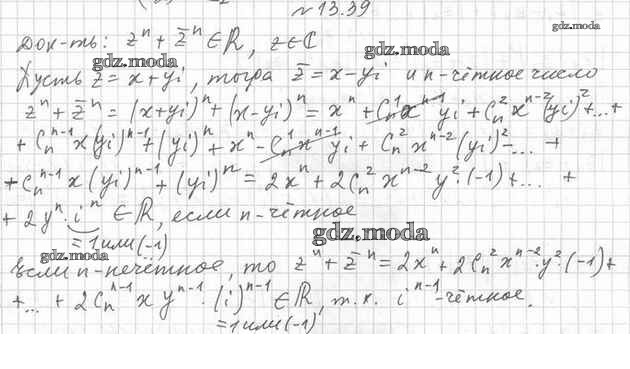 №13.39
gdz.moda
Док-ть: zⁿ + z̄ⁿ ∈ ℝ, z ∈ ℂ
gdz.moda
gdz.moda
Пусть z = x + yi, тогда z̄ = x − yi и n-чётное число
zⁿ + z̄ⁿ = (x+yi)ⁿ + (x−yi)ⁿ = xⁿ + Cₙ¹ xⁿ⁻¹ yi + Cₙ² xⁿ⁻² (yi)² + ... +
+ Cₙⁿ⁻¹ x (yi)ⁿ⁻¹ + (yi)ⁿ + xⁿ − Cₙ¹ xⁿ⁻¹ yi + Cₙ² xⁿ⁻² (yi)² − ... +
+ Cₙⁿ⁻¹ x (yi)ⁿ⁻¹ + (yi)ⁿ = 2xⁿ + 2Cₙ² xⁿ⁻² y² · (−1) + ... +
+ 2yⁿ · iⁿ ∈ ℝ, если n-чётное
gdz.moda
= 1 или (−1)
gdz.moda
Если n-нечётное, то zⁿ + z̄ⁿ = 2xⁿ + 2Cₙ² xⁿ⁻² · y² · (−1) +
+ ... + 2Cₙⁿ⁻¹ x yⁿ⁻¹ · (i)ⁿ⁻¹ ∈ ℝ, т.к. iⁿ⁻¹ -чётное.
= 1 или (−1)
gdz.moda